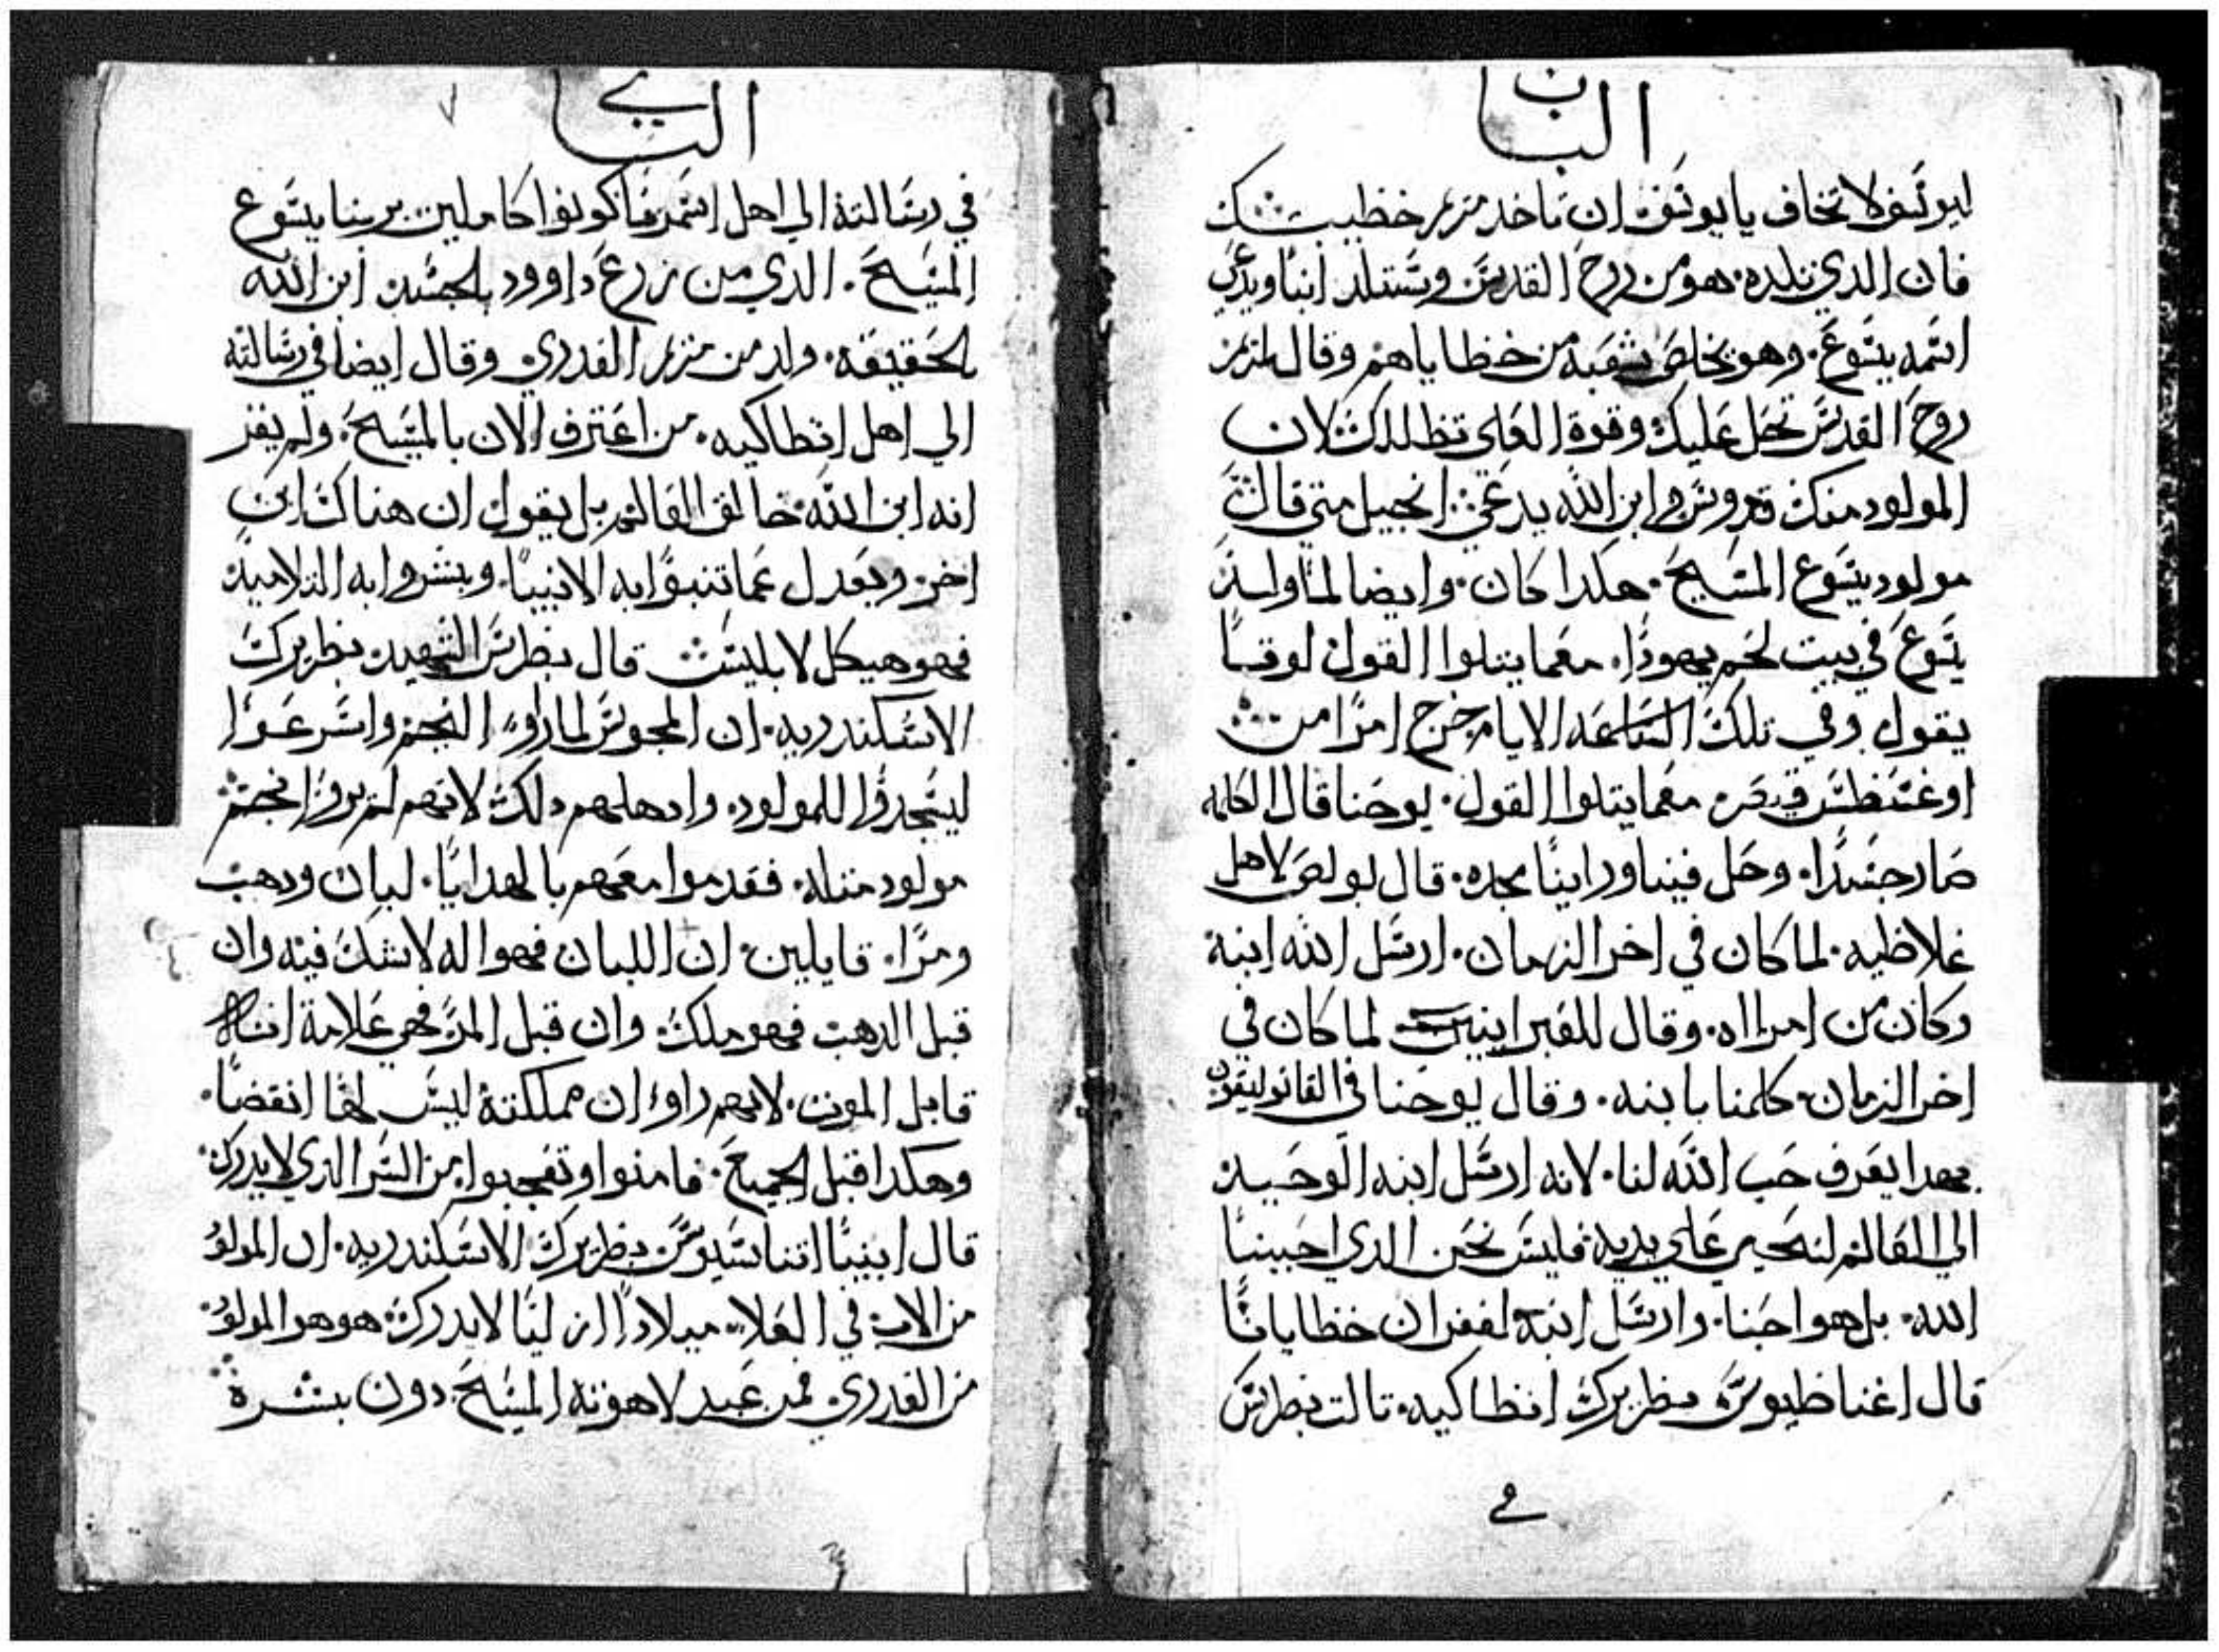 الباب
ليوسف لا تخاف يا يوسف ان تاخد مريم خطيبتك
فان الدي تلده هو من روح القدس وستلد ابنا ويدعي
اسمه يسوع. وهو يخلص شعبه من خطاياهم وقال لمريم
روح القدس تحل عليك وقوة العلي تظللك لان
المولود منك قدوس وابن الله يدعي انجيل متي قال
مولود يسوع المسيح. هكدا كان. وايضا لما ولد
يسوع في بيت لحم يهودا. معما يتلوا القول لوقا
يقول وفي تلك الساعه الايام خرج امرا من
اوغسطس قيصر معما يتلوا القول. يوحنا قال الكلمه
صار جسدا. وحل فينا وراينا مجده. قال بولص لاهل
غلاطيه. لما كان في اخر الزمان. ارسل الله ابنه
وكان من امراه. وقال للعبرانيين لما كان في
اخر الزمان كلمنا بابنه. وقال يوحنا في القاتوليقون
بهدا يعرف حب الله لنا. لانه ارسل ابنه الوحيد
الي العالم لنحيي علي يديه فليس نحن الدي احببنا
الله. بل هو احبنا. وارسل ابنه لغفران خطايانا
قال اغناطيوس بطريرك انطاكيه. تالت بطرس
في
الباب
٧
في رسالته الي اهل اسمرنا كونوا كاملين بربنا يسوع
المسيح. الدي من زرع داوود بالجسد ابن الله
بالحقيقه. ولد من مريم العدري وقال ايضا في رسالته
الي اهل انطاكيه. من اعترف الان بالمسيح. ولم يقر
انه ابن الله خالق العالم بل يقول ان هناك ابن
اخر. ويعدل عما تنبوا به الانبيا. وبشروا به التلاميد
فهو هيكل لابليس قال بطرس الشهيد بطريرك
الاسكندريه. ان المجوس لما راوا النجم واسرعوا
ليسجدوا للمولود. وادهلهم دلك لانهم لم يروا نجم
مولود مثله. فقدموا معهم بالهدايا. لبان ودهب
ومرا. قايلين ان اللبان فهو اله لا شك فيه وان
قبل الدهب فهو ملك وان قبل المر فهي علامة انه
قابل الموت. لانهم راوا ان مملكته ليس لها انقضا.
وهكدا قبل الجميع. فامنوا وتعجبوا من السر الدي لا يدرك.
قال ابينا اتناسيوس بطريرك الاسكندريه. ان المولود
من الاب في العلا. ميلادا ازليا لا يدرك هو هو المولود
من العدري فمن عبد لاهوته المسيح دون بشره